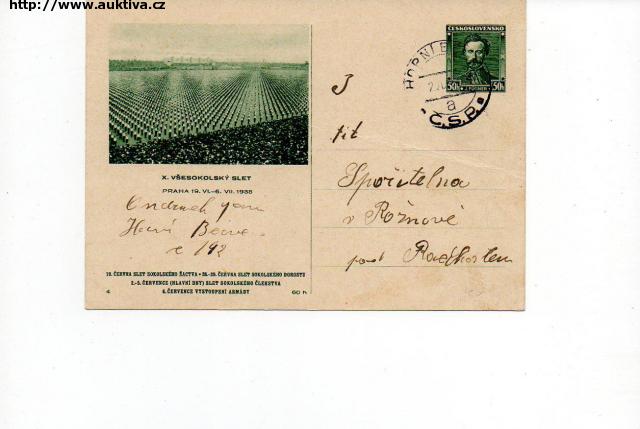 http://www.auktiva.cz
ČESKOSLOVENSKO
50h J. FÜGNER 50h
HORNÍ
a
Č.S.P.
X. VŠESOKOLSKÝ SLET
PRAHA 19. VI.–6. VII. 1938
c 192
19. ČERVNA SLET SOKOLSKÉHO ŽACTVA • 25.-29. ČERVNA SLET SOKOLSKÉHO DOROSTU
2.-5. ČERVENCE (HLAVNÍ DNY) SLET SOKOLSKÉHO ČLENSTVA
6. ČERVENCE VYSTOUPENÍ ARMÁDY
4 60 h
Spořitelna
v Rožnově
pod Radhoštem